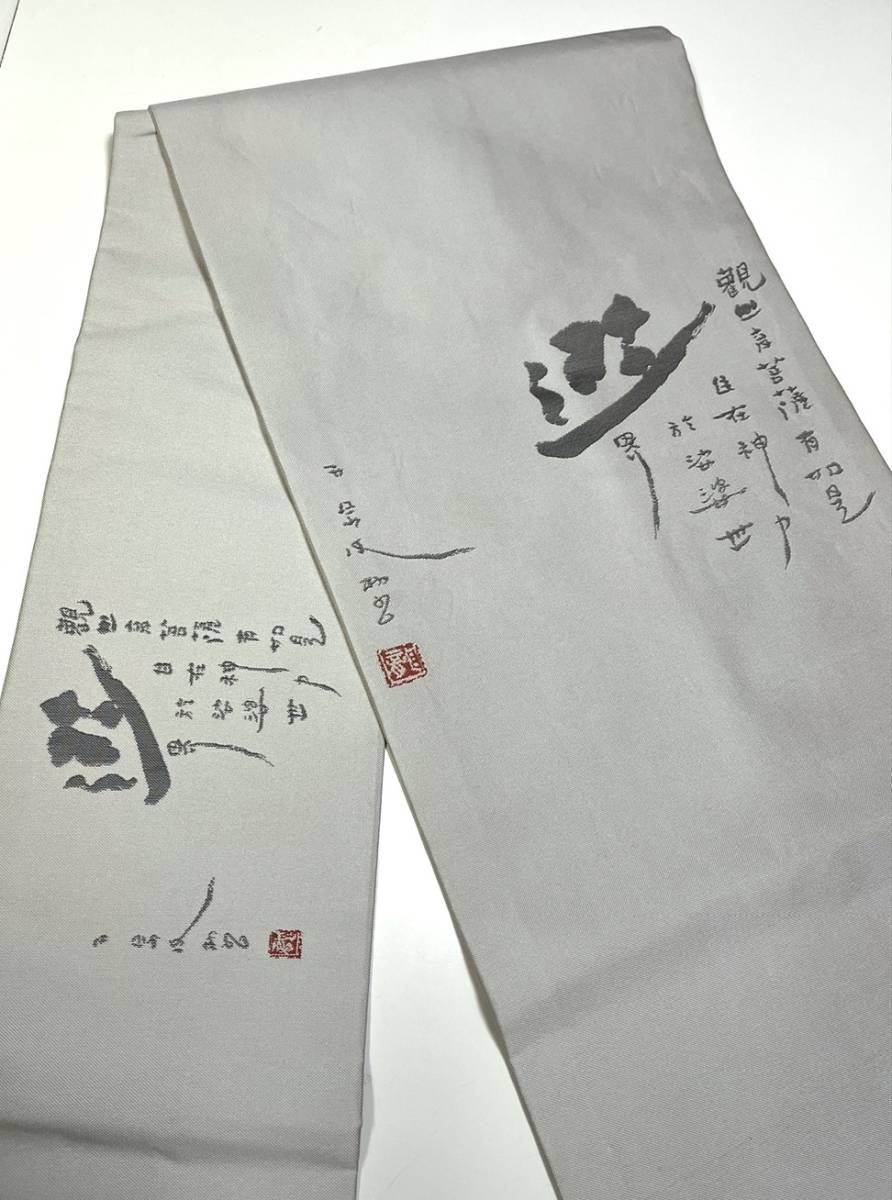 觀世音菩薩有如是
自在神力
遊
於娑婆世
界
觀世音菩薩有如是
自在神力
遊
於娑婆世
界